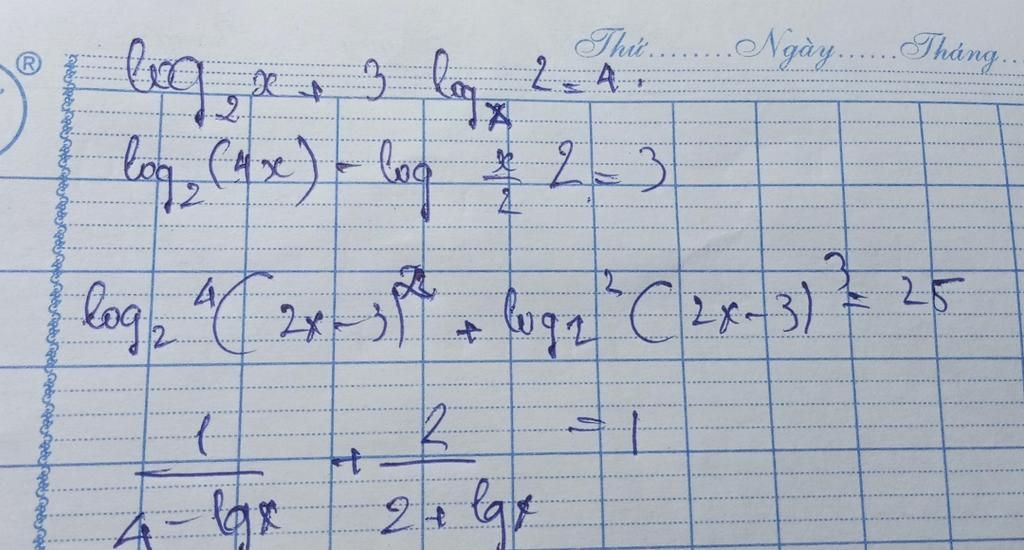 ® Thứ.......Ngày......Tháng...
log₂ x + 3 logₓ 2 = 4.
log₂ (4x) - log_{x/2} 2 = 3
log₂⁴ (2x - 3)² + log₂² (2x - 3)³ = 25
1/(4 - lgx) + 2/(2 + lgx) = 1